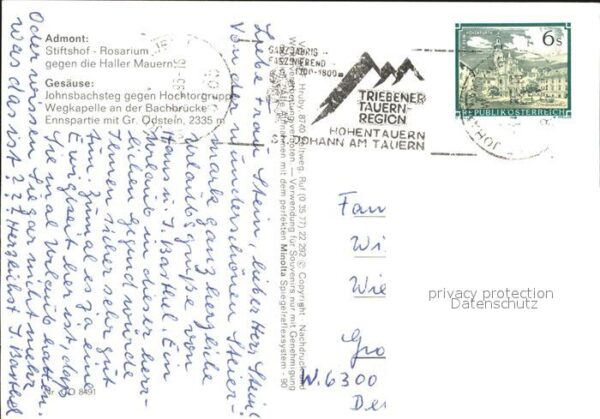 Admont:
Stiftshof - Rosarium
gegen die Haller Mauern
Gesäuse:
Johnsbachsteg gegen Hochtorgruppe
Wegkapelle an der Bachbrücke
Ennspartie mit Gr. Ödstein, 2335 m
GANZJÄHRIG
FASZINIEREND
1200-1800m
TRIEBENER
TAUERN-
REGION
HOHENTAUERN
ST. JOHANN AM TAUERN
6 s
REPUBLIK ÖSTERREICH
Hruby, 8740 Zeltweg, Ruf (0 35 77) 22 292 © Copyright - Nachdruck und
Verwendung für Souvenirs nur mit Genehmigung
Aufnahmen mit dem perfekten Minolta Spiegelreflexsystem - 90
Liebe Frau Stein, lieber Herr Stein!
Von der wunderschönen Steier-
mark ganz herzliche
Urlaubsgrüße von
Hans u. J. Basthel. Ein
Urlaub in dieser herr-
lichen Gegend würde
Ihnen sicher sehr gut
tun, zumal es ja eine
Ewigkeit her ist, daß
Sie mal Urlaub hatten.
Oder wissen Sie gar nicht mehr
was das ist? ? ? Herzlichst J. Basthel
Fam
Wi
Wie
Gro
W. 6300
Deu
privacy protection
Datenschutz
8491